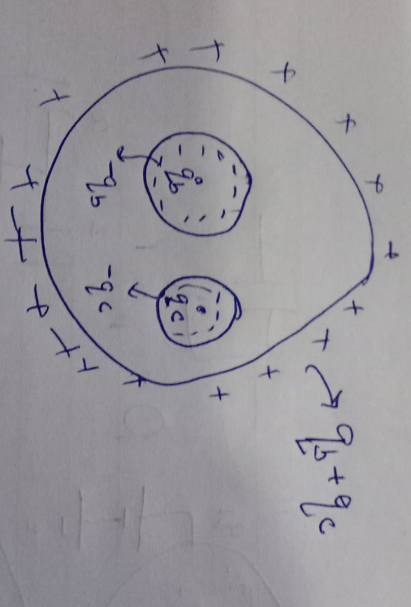 q_b
-q_b
q_c
-q_c
q_b + q_c